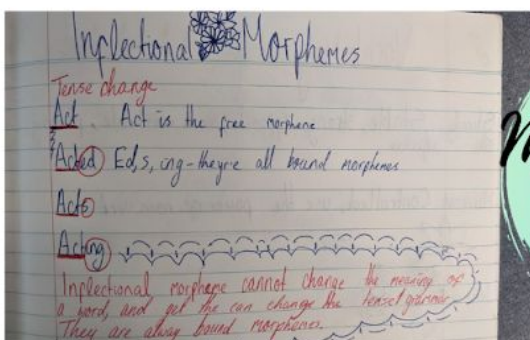 Inflectional Morphemes
Tense change
Act Act is the free morpheme
Acted Ed, s, ing - they're all bound morphemes
Acts
Acting
Inflectional morpheme cannot change the meaning of
a word, and yet the can change the tense/grammar
They are alway bound morphemes.